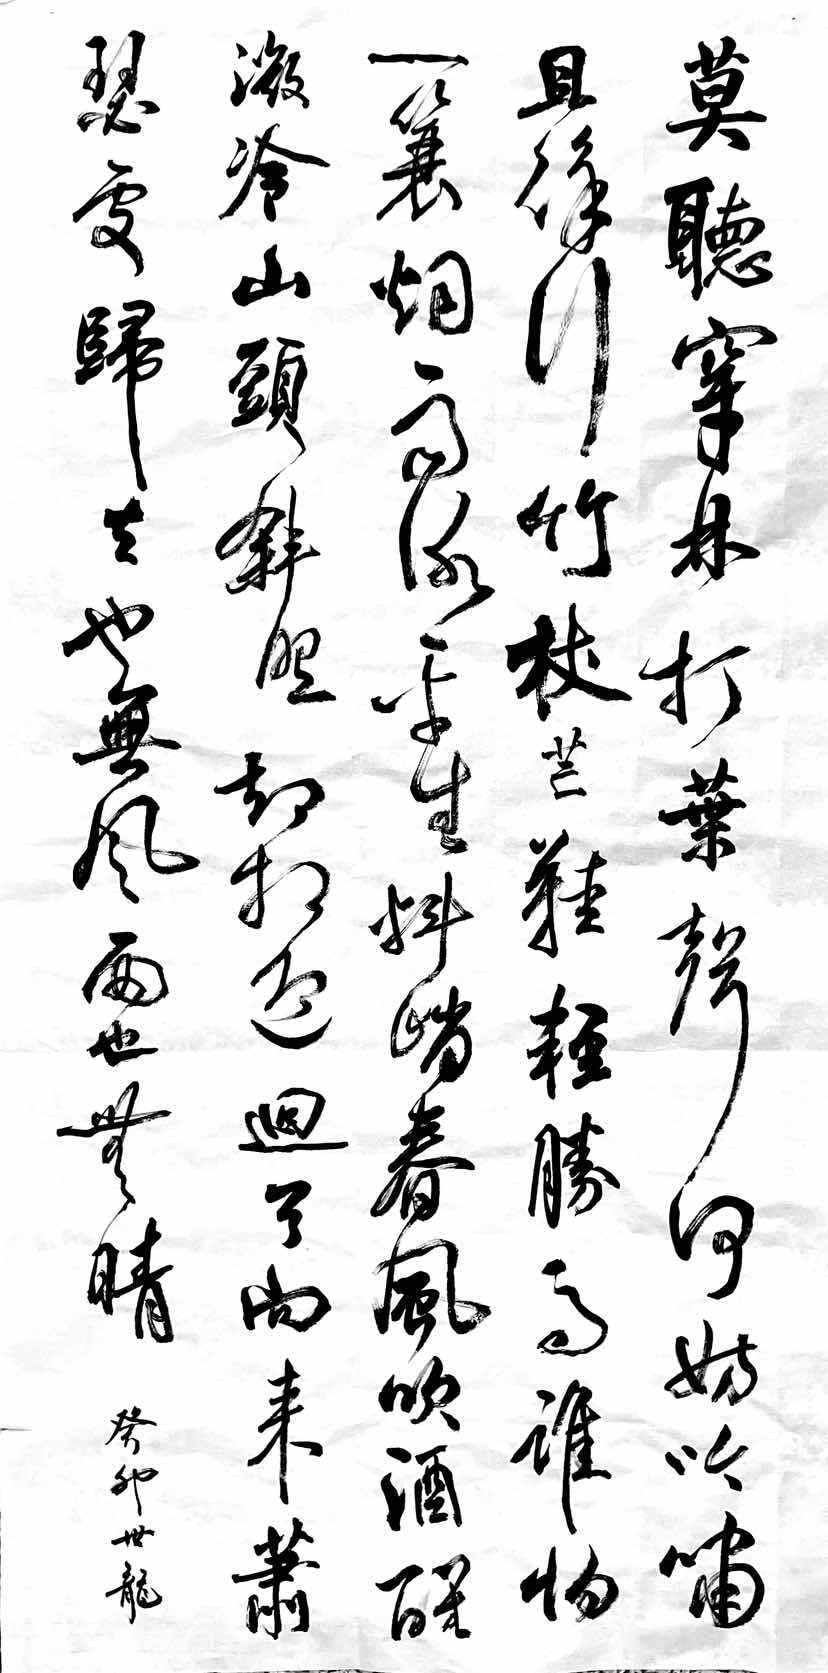 莫聽穿林打葉聲何妨吟嘯
且徐行竹杖芒鞋輕勝馬誰怕
一蓑烟雨任平生料峭春風吹酒醒
微冷山頭斜照却相迎迴首向来蕭
瑟處歸去也無風雨也無晴
癸卯世龍